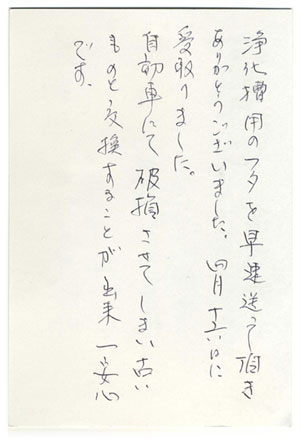 浄化槽用のフタを早速送って頂き
ありがとうございました。四月十五日に
受取りました。
自動車にて破損させてしまい古い
ものと交換することが出来一安心
です。